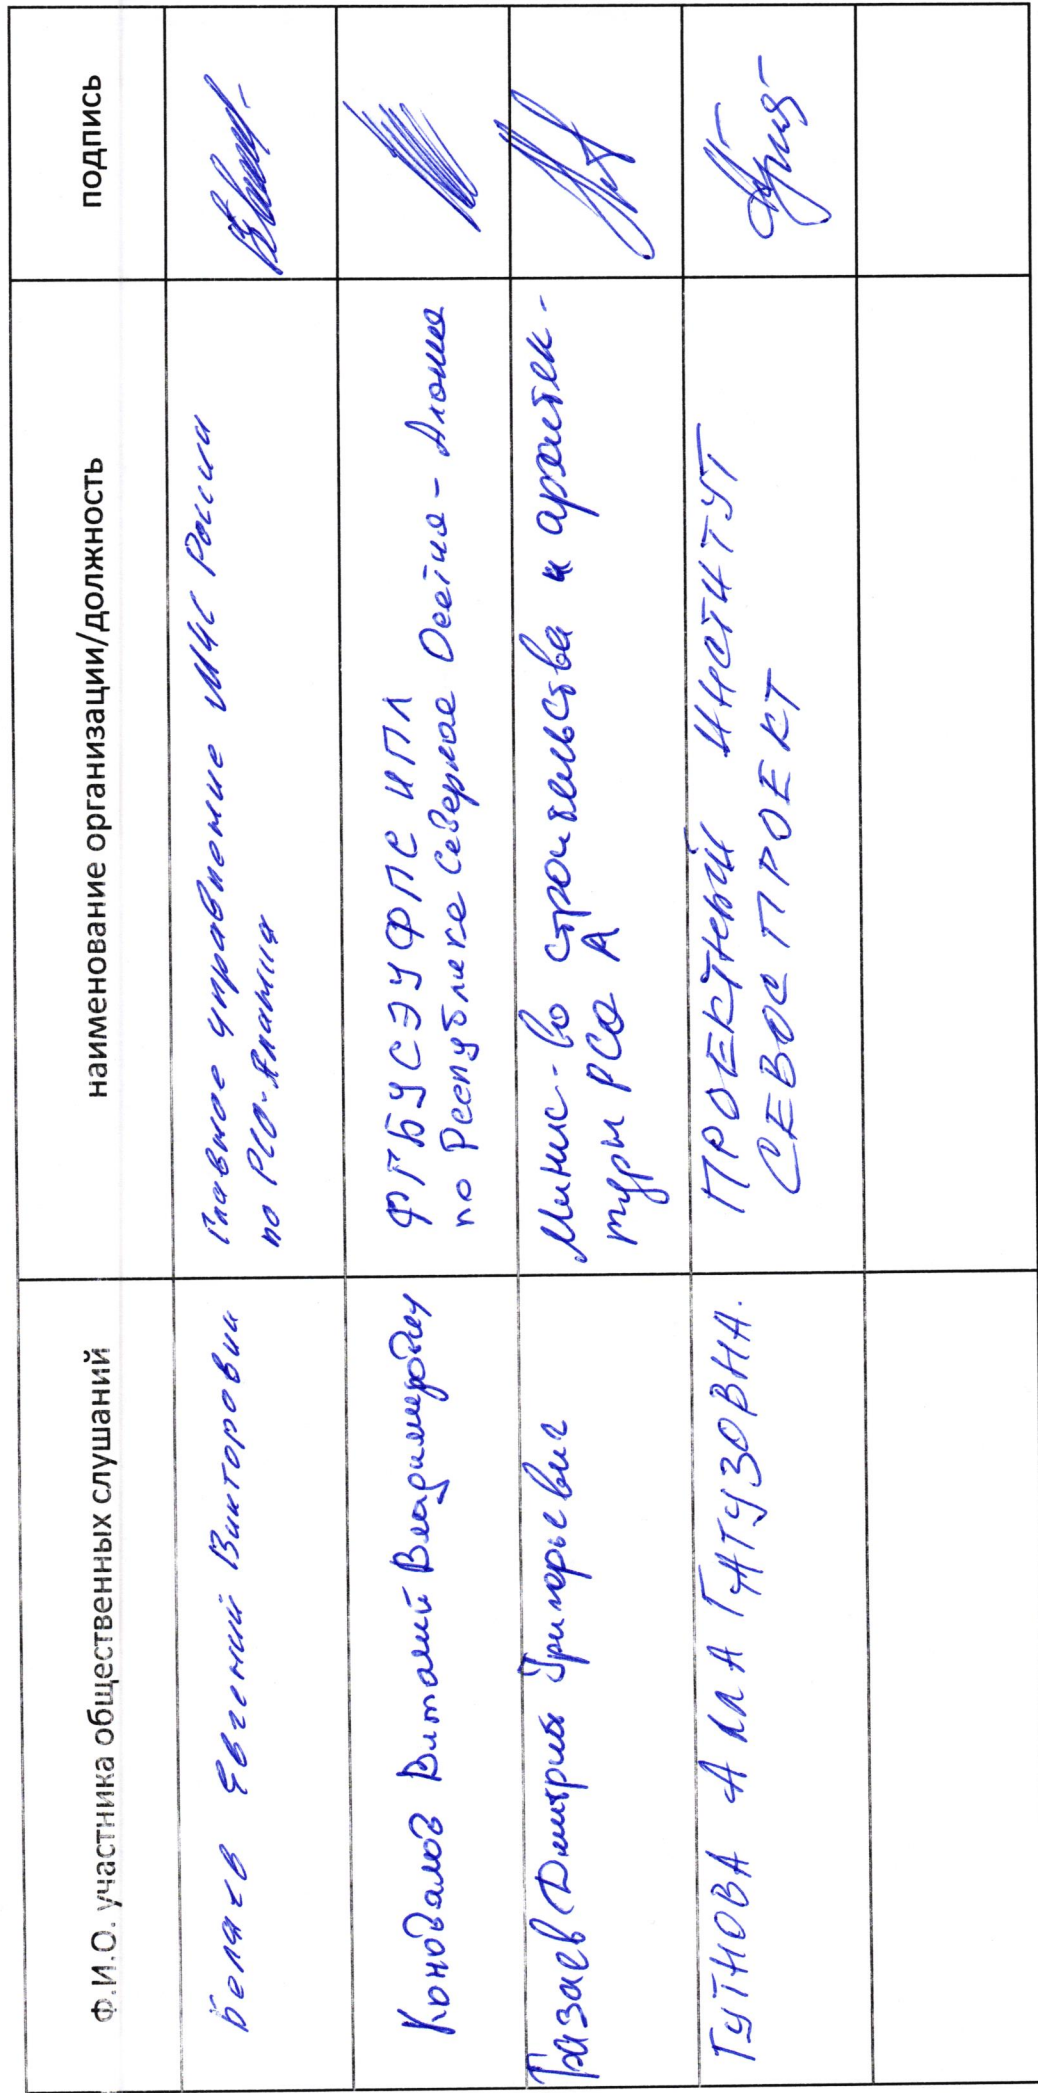 Ф.И.О. участника общественных слушаний
наименование организации/должность
подпись
Беляев Евгений Викторович
Главное управление МЧС России
по РСО-Алания
Коновалов Виталий Владимирович
ФГБУ СЭУ ФПС ИПЛ
по Республике Северная Осетия - Алания
Газаев Дмитрий Григорьевич
Минис-во строительства и архитек-
туры РСО А
ГУТНОВА АЛЛА ГАГУЗОВНА.
ПРОЕКТНЫЙ ИНСТИТУТ
СЕВОСПРОЕКТ